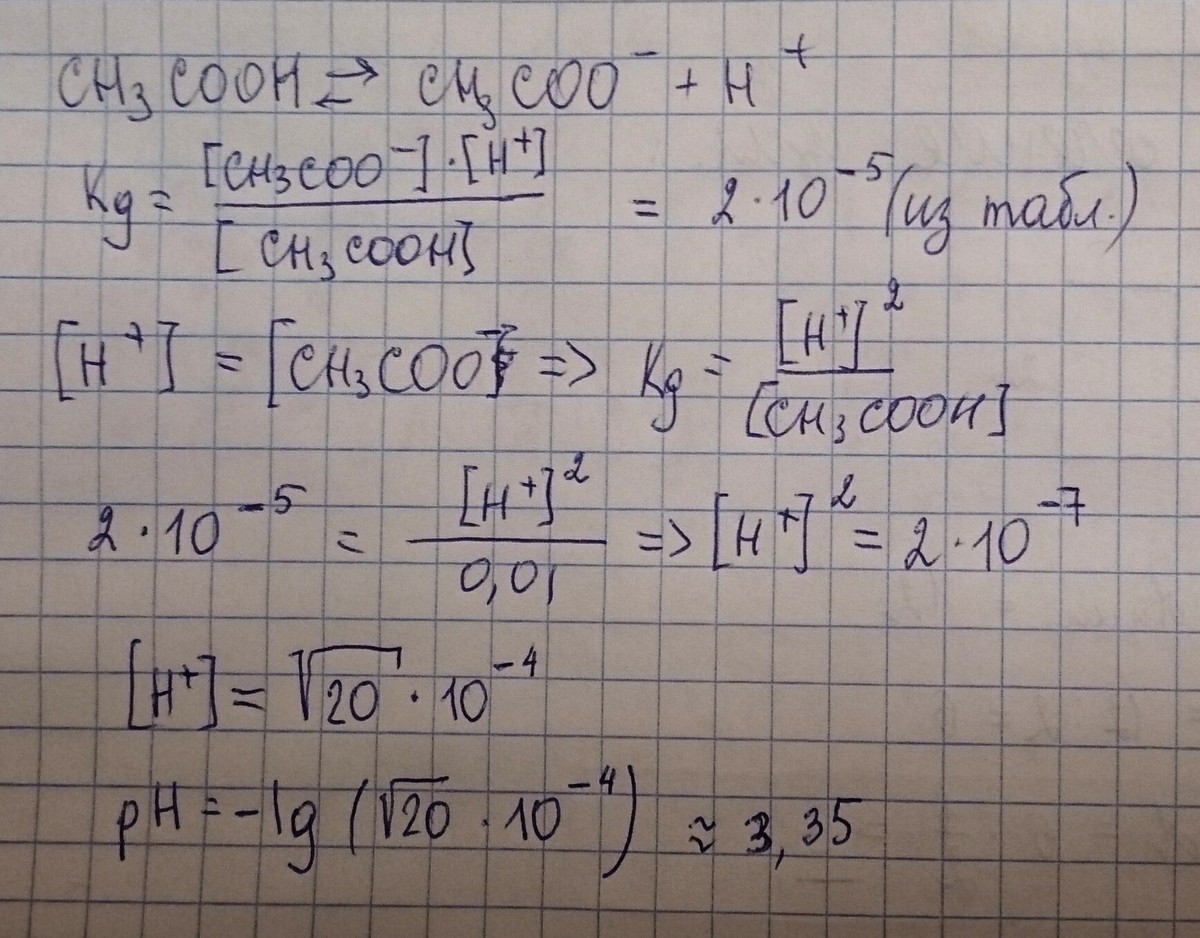 CH₃COOH ⇄ CH₃COO⁻ + H⁺
Kg = [CH₃COO⁻]·[H⁺] / [CH₃COOH] = 2·10⁻⁵ (из табл.)
[H⁺] = [CH₃COO⁻] => Kg = [H⁺]² / [CH₃COOH]
2·10⁻⁵ = [H⁺]² / 0,01 => [H⁺]² = 2·10⁻⁷
[H⁺] = √20 · 10⁻⁴
pH = -lg (√20 · 10⁻⁴) ≈ 3,35